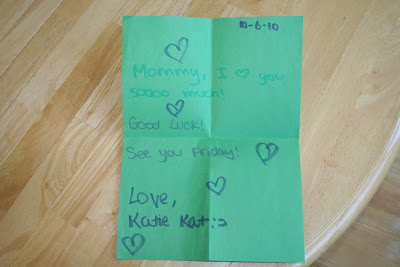 10-6-10
Mommy, I ♡ you
soooo much!
Good Luck!
See you Friday!
Love,
Katie Kat:->